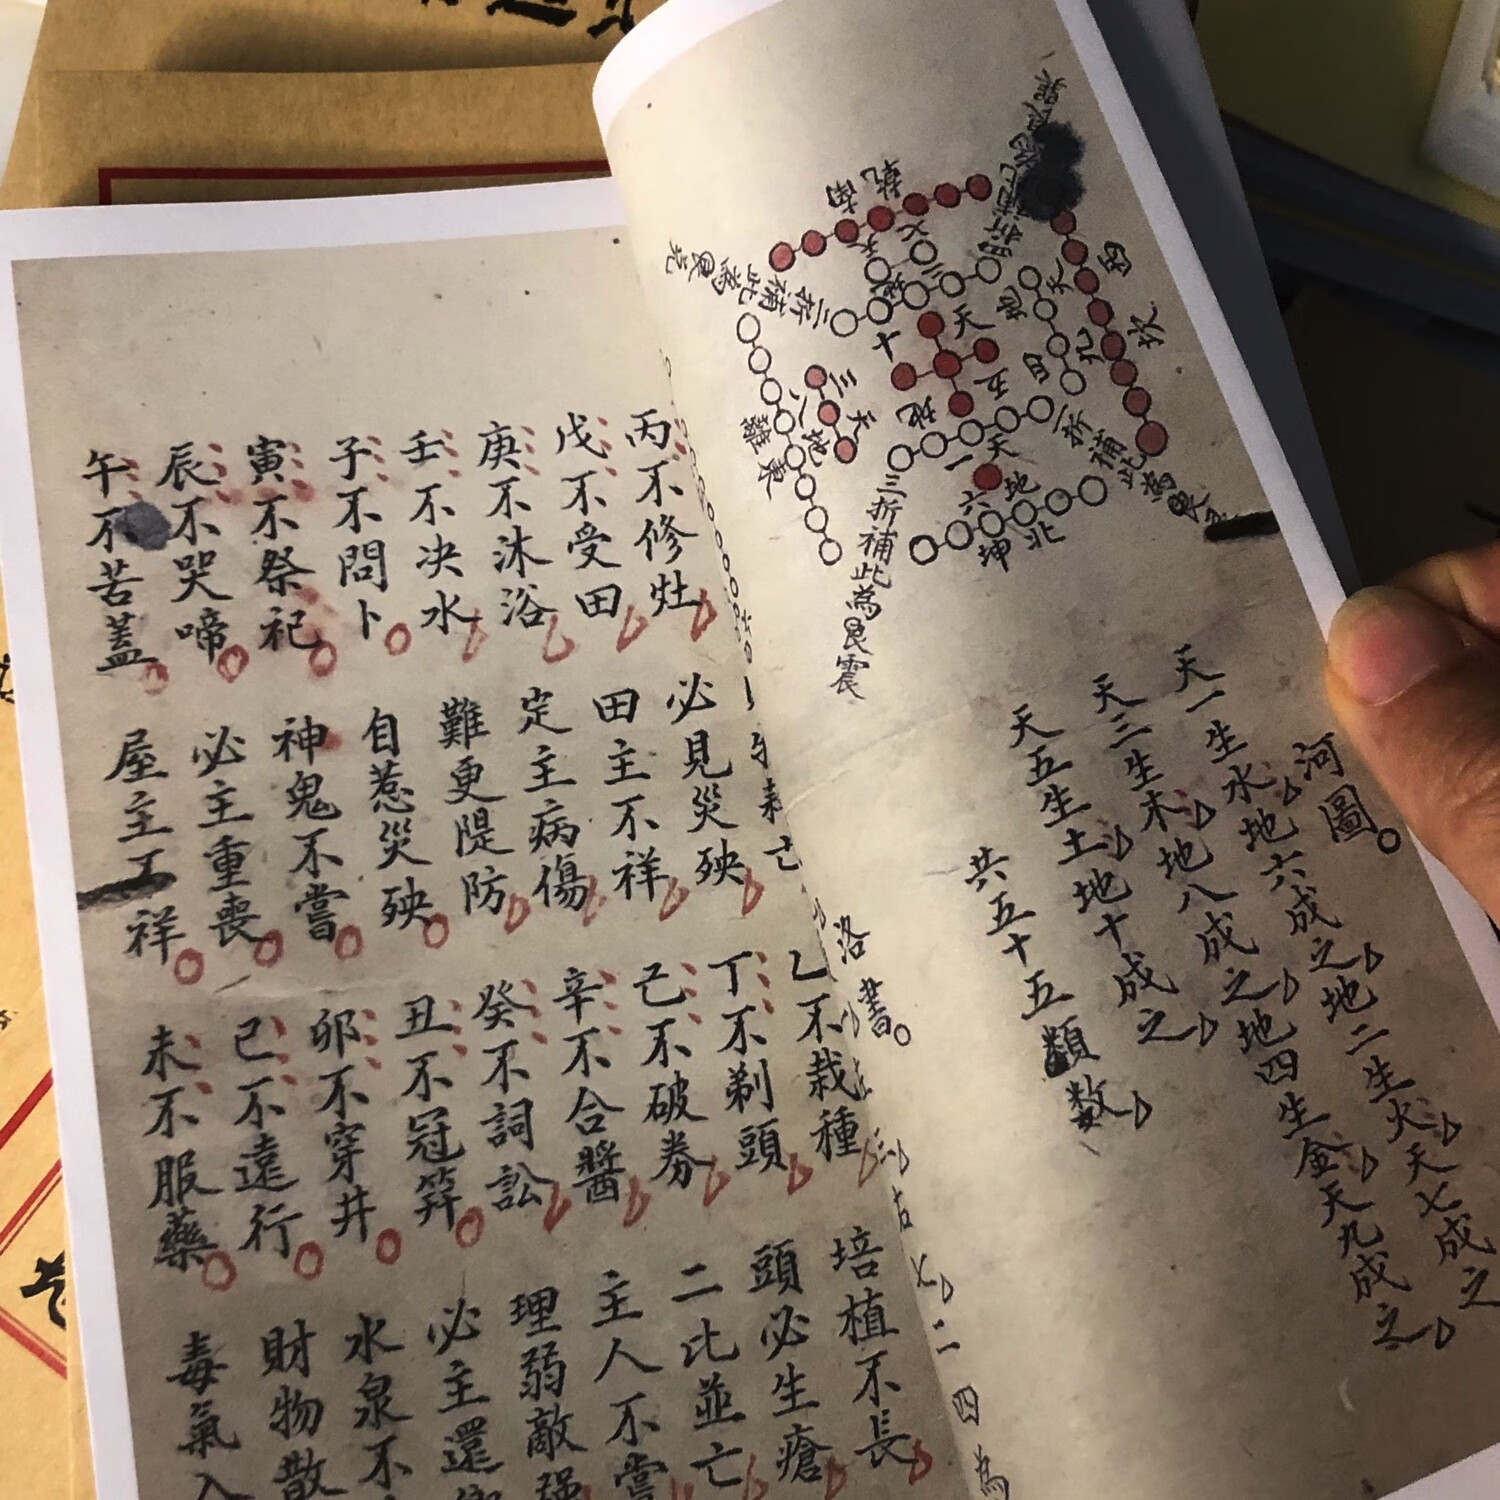 河圖
天一生水地六成之地二生火天七成之
天三生木地八成之地四生金天九成之
天五生土地十成之
共五十五類数
乾南
天七
地二
三折補此為巽兌
離東
天三
地八
天五
地十
天九
地四
西坎
一折補此為艮巽
天一
地六
坤北
三折補此為艮震
洛書
二四為
丙不修灶 必見災殃 丁不剃頭 頭必生瘡
乙不栽種 培植不長
戊不受田 田主不祥 己不破券 二比並亡
庚不沐浴 定主病傷 辛不合醬 主人不嘗
壬不決水 難更隄防 癸不詞訟 理弱敵强
子不問卜 自惹災殃 丑不冠笄 必主還
寅不祭祀 神鬼不嘗 卯不穿井 水泉不
辰不哭啼 必主重喪 巳不遠行 財物散
午不苫蓋 屋主不祥 未不服藥 毒氣入